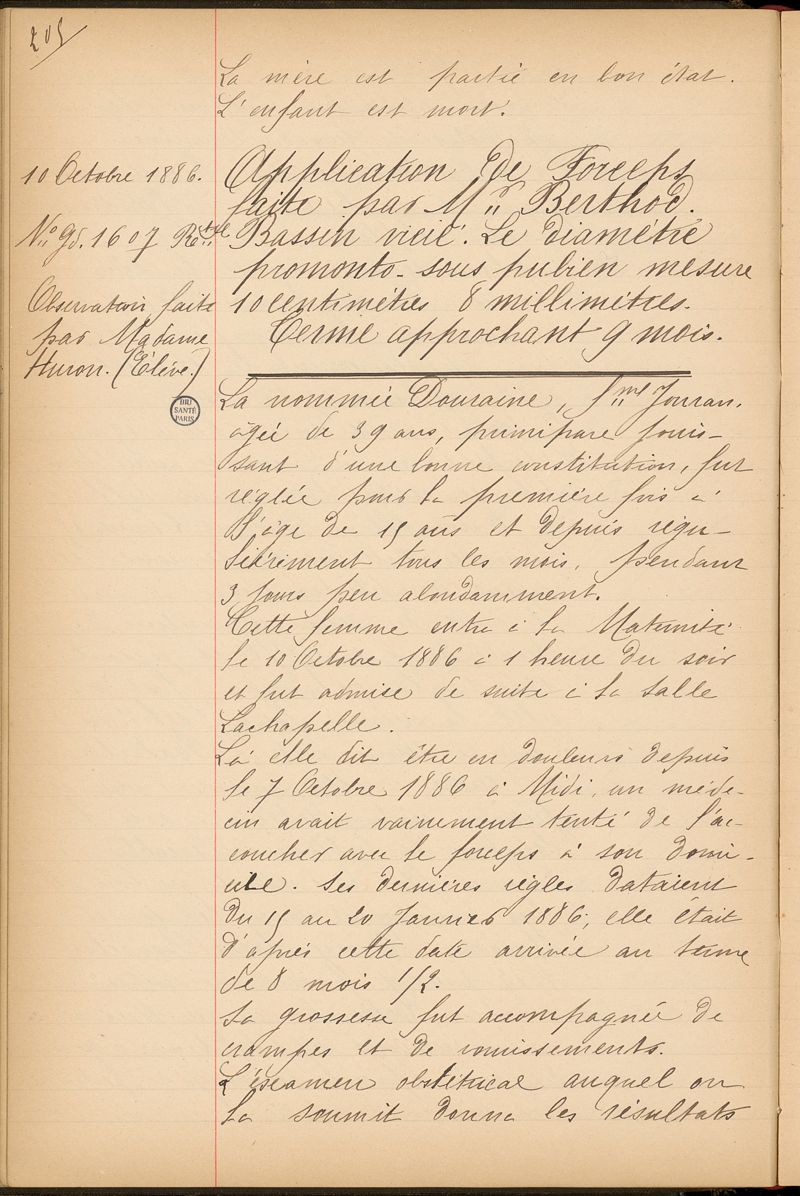 205
La mère est partie en bon état.
L'enfant est mort.
10 Octobre 1886.
N° gd. 1607 Rtre
Observation faite
par Madame
Huron. (Elève.)
BIU
SANTÉ
PARIS
Application de Forceps
faite par Mr Berthod.
Bassin vicié. Le diamètre
promonto-sous pubien mesure
10 centimètres 8 millimètres.
Terme approchant 9 mois.
La nommée Douraine, fme Jouran,
âgée de 39 ans, primipare jouis-
sant d'une bonne constitution, fut
réglée pour la première fois à
l'âge de 15 ans et depuis régu-
lièrement tous les mois, pendant
3 jours peu abondamment.
Cette femme entra à la Maternité
le 10 Octobre 1886 à 1 heure du soir
et fut admise de suite à la salle
Lachapelle.
Là elle dit être en douleurs depuis
le 7 Octobre 1886 à Midi, un méde-
cin avait vainement tenté de l'ac-
coucher avec le forceps à son domi-
cile. Ses dernières règles dataient
du 15 au 20 Janvier 1886, elle était
d'après cette date arrivée au terme
de 8 mois 1/2.
Sa grossesse fut accompagnée de
crampes et de vomissements.
L'examen obstétrical auquel on
la soumit donna les résultats